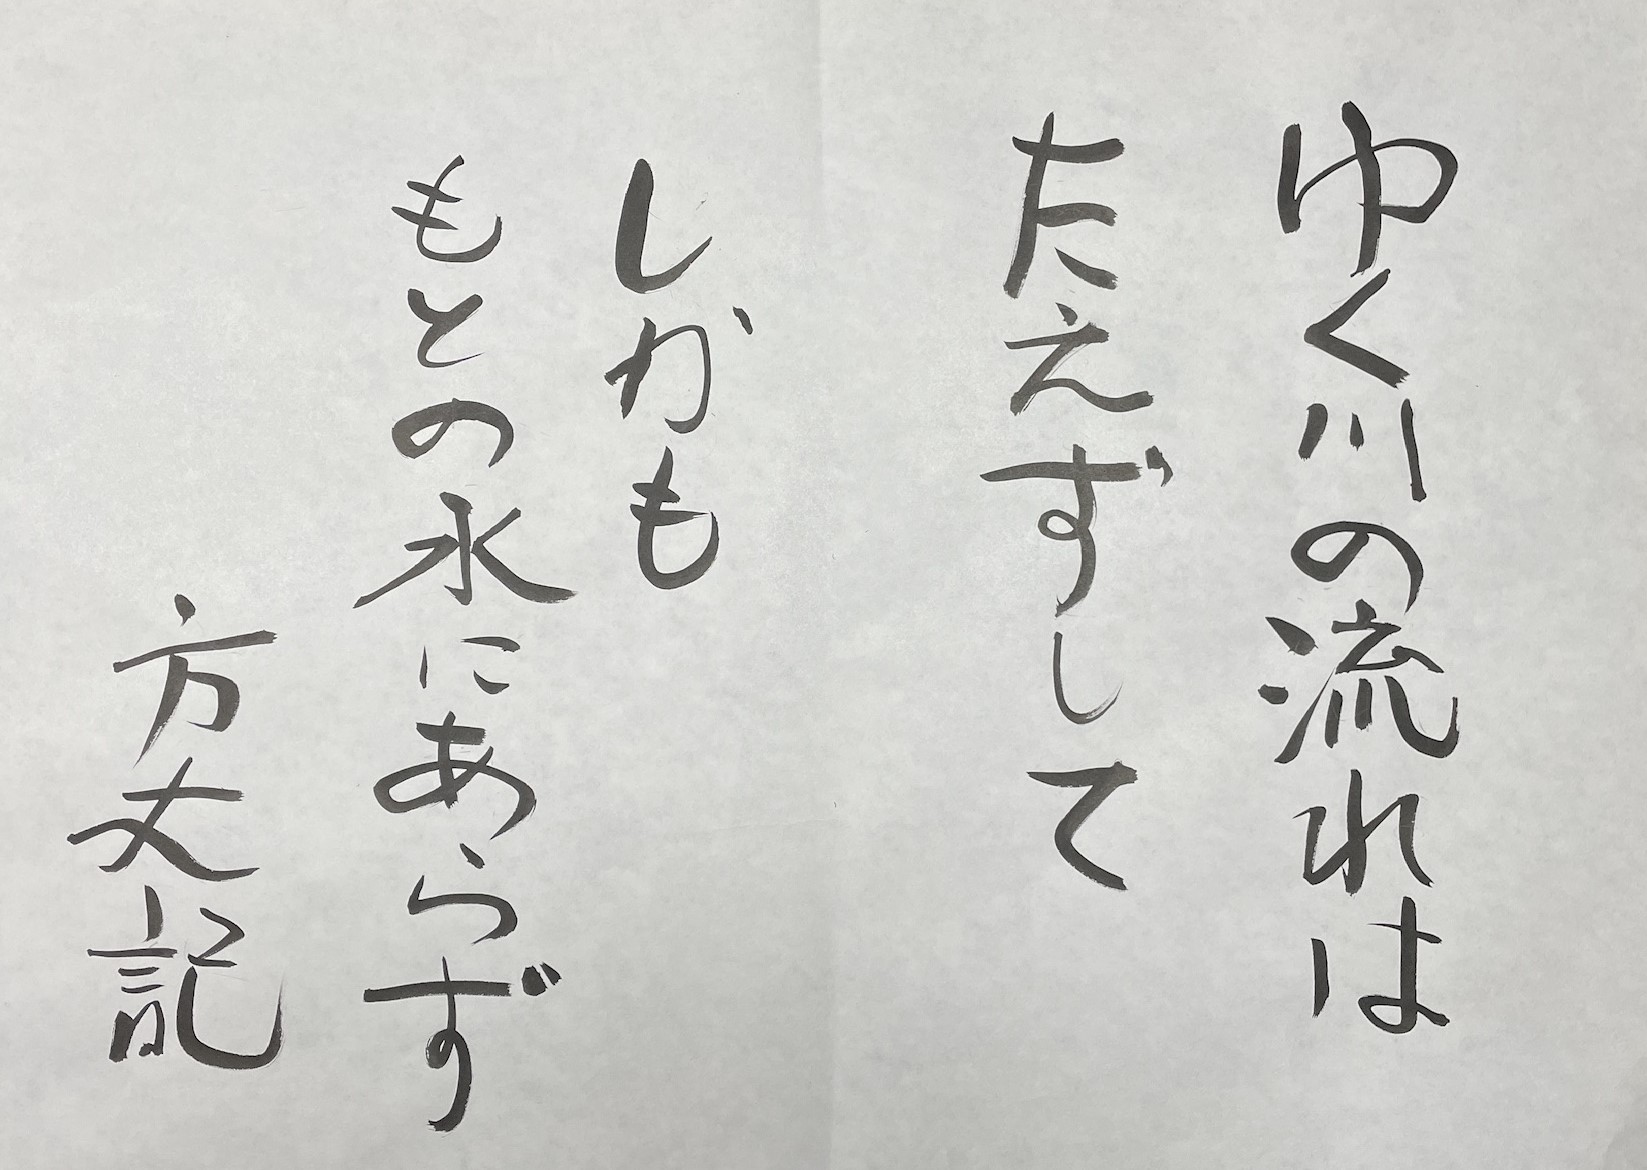 ゆく川の流れは
たえずして
しかも
もとの水にあらず
方丈記